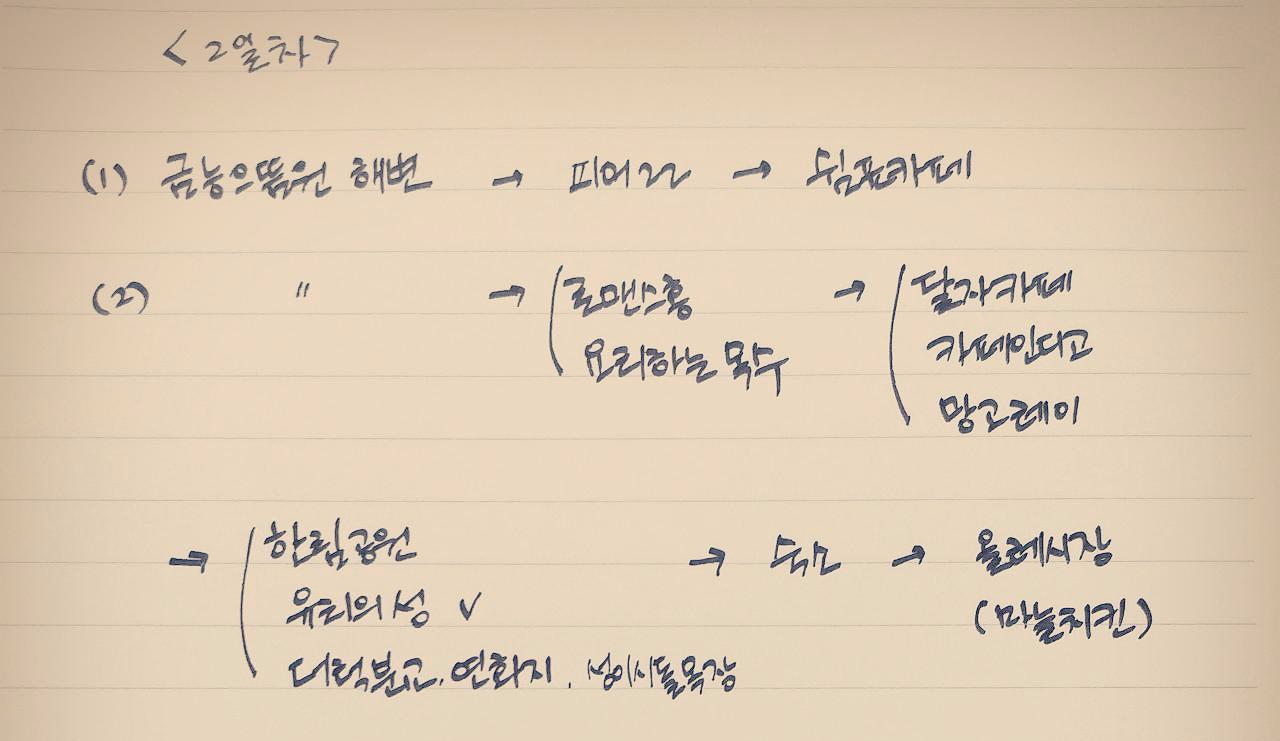 <2일차>
(1) 금능으뜸원 해변 → 피어22 → 쉼표카페
(2) " → 로맨스홍 → 달자카페
요리하는 목수 카페인디고
망고레이
→ 한림공원 → 숙소 → 올레시장
유리의성 ∨ (마늘치킨)
더럭분교. 연화지. 성이시돌목장